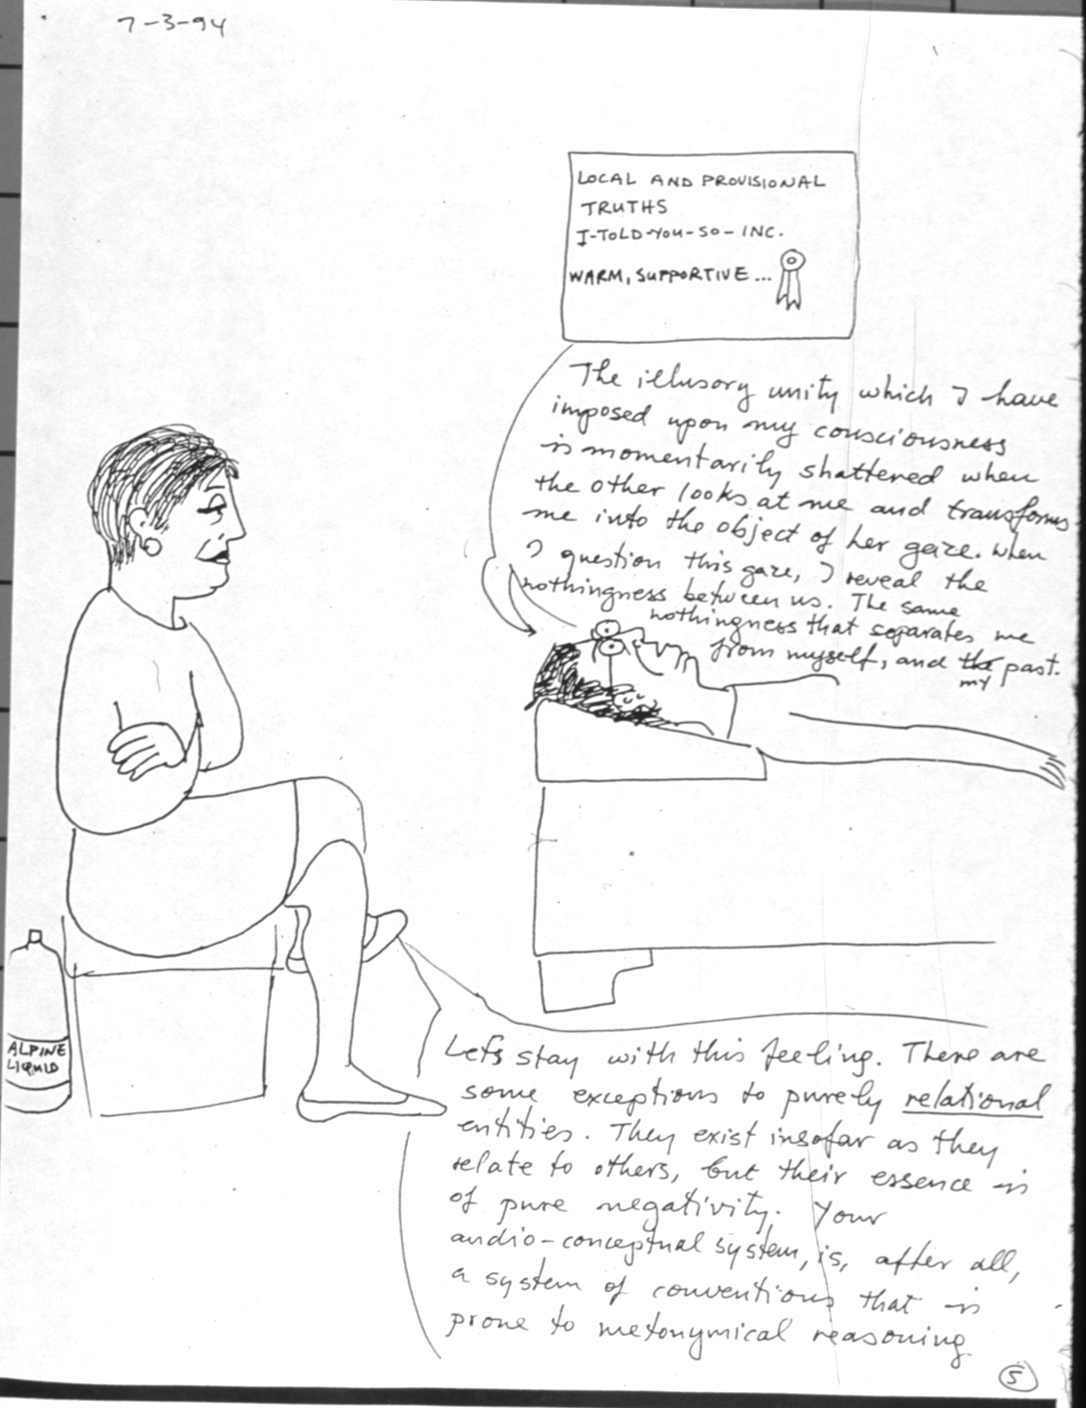 7-3-94
LOCAL AND PROVISIONAL
TRUTHS
I-TOLD-YOU-SO-INC.
WARM, SUPPORTIVE...
The illusory unity which I have
imposed upon my consciousness
is momentarily shattered when
the other looks at me and transforms
me into the object of her gaze. When
I question this gaze, I reveal the
nothingness between us. The same
nothingness that separates me
from myself, and the past.
my
ALPINE
LIQUID
Lets stay with this feeling. There are
some exceptions to purely relational
entities. They exist insofar as they
relate to others, but their essence is
of pure negativity. Your
audio-conceptual system, is, after all,
a system of conventions that is
prone to metonymical reasoning.
5